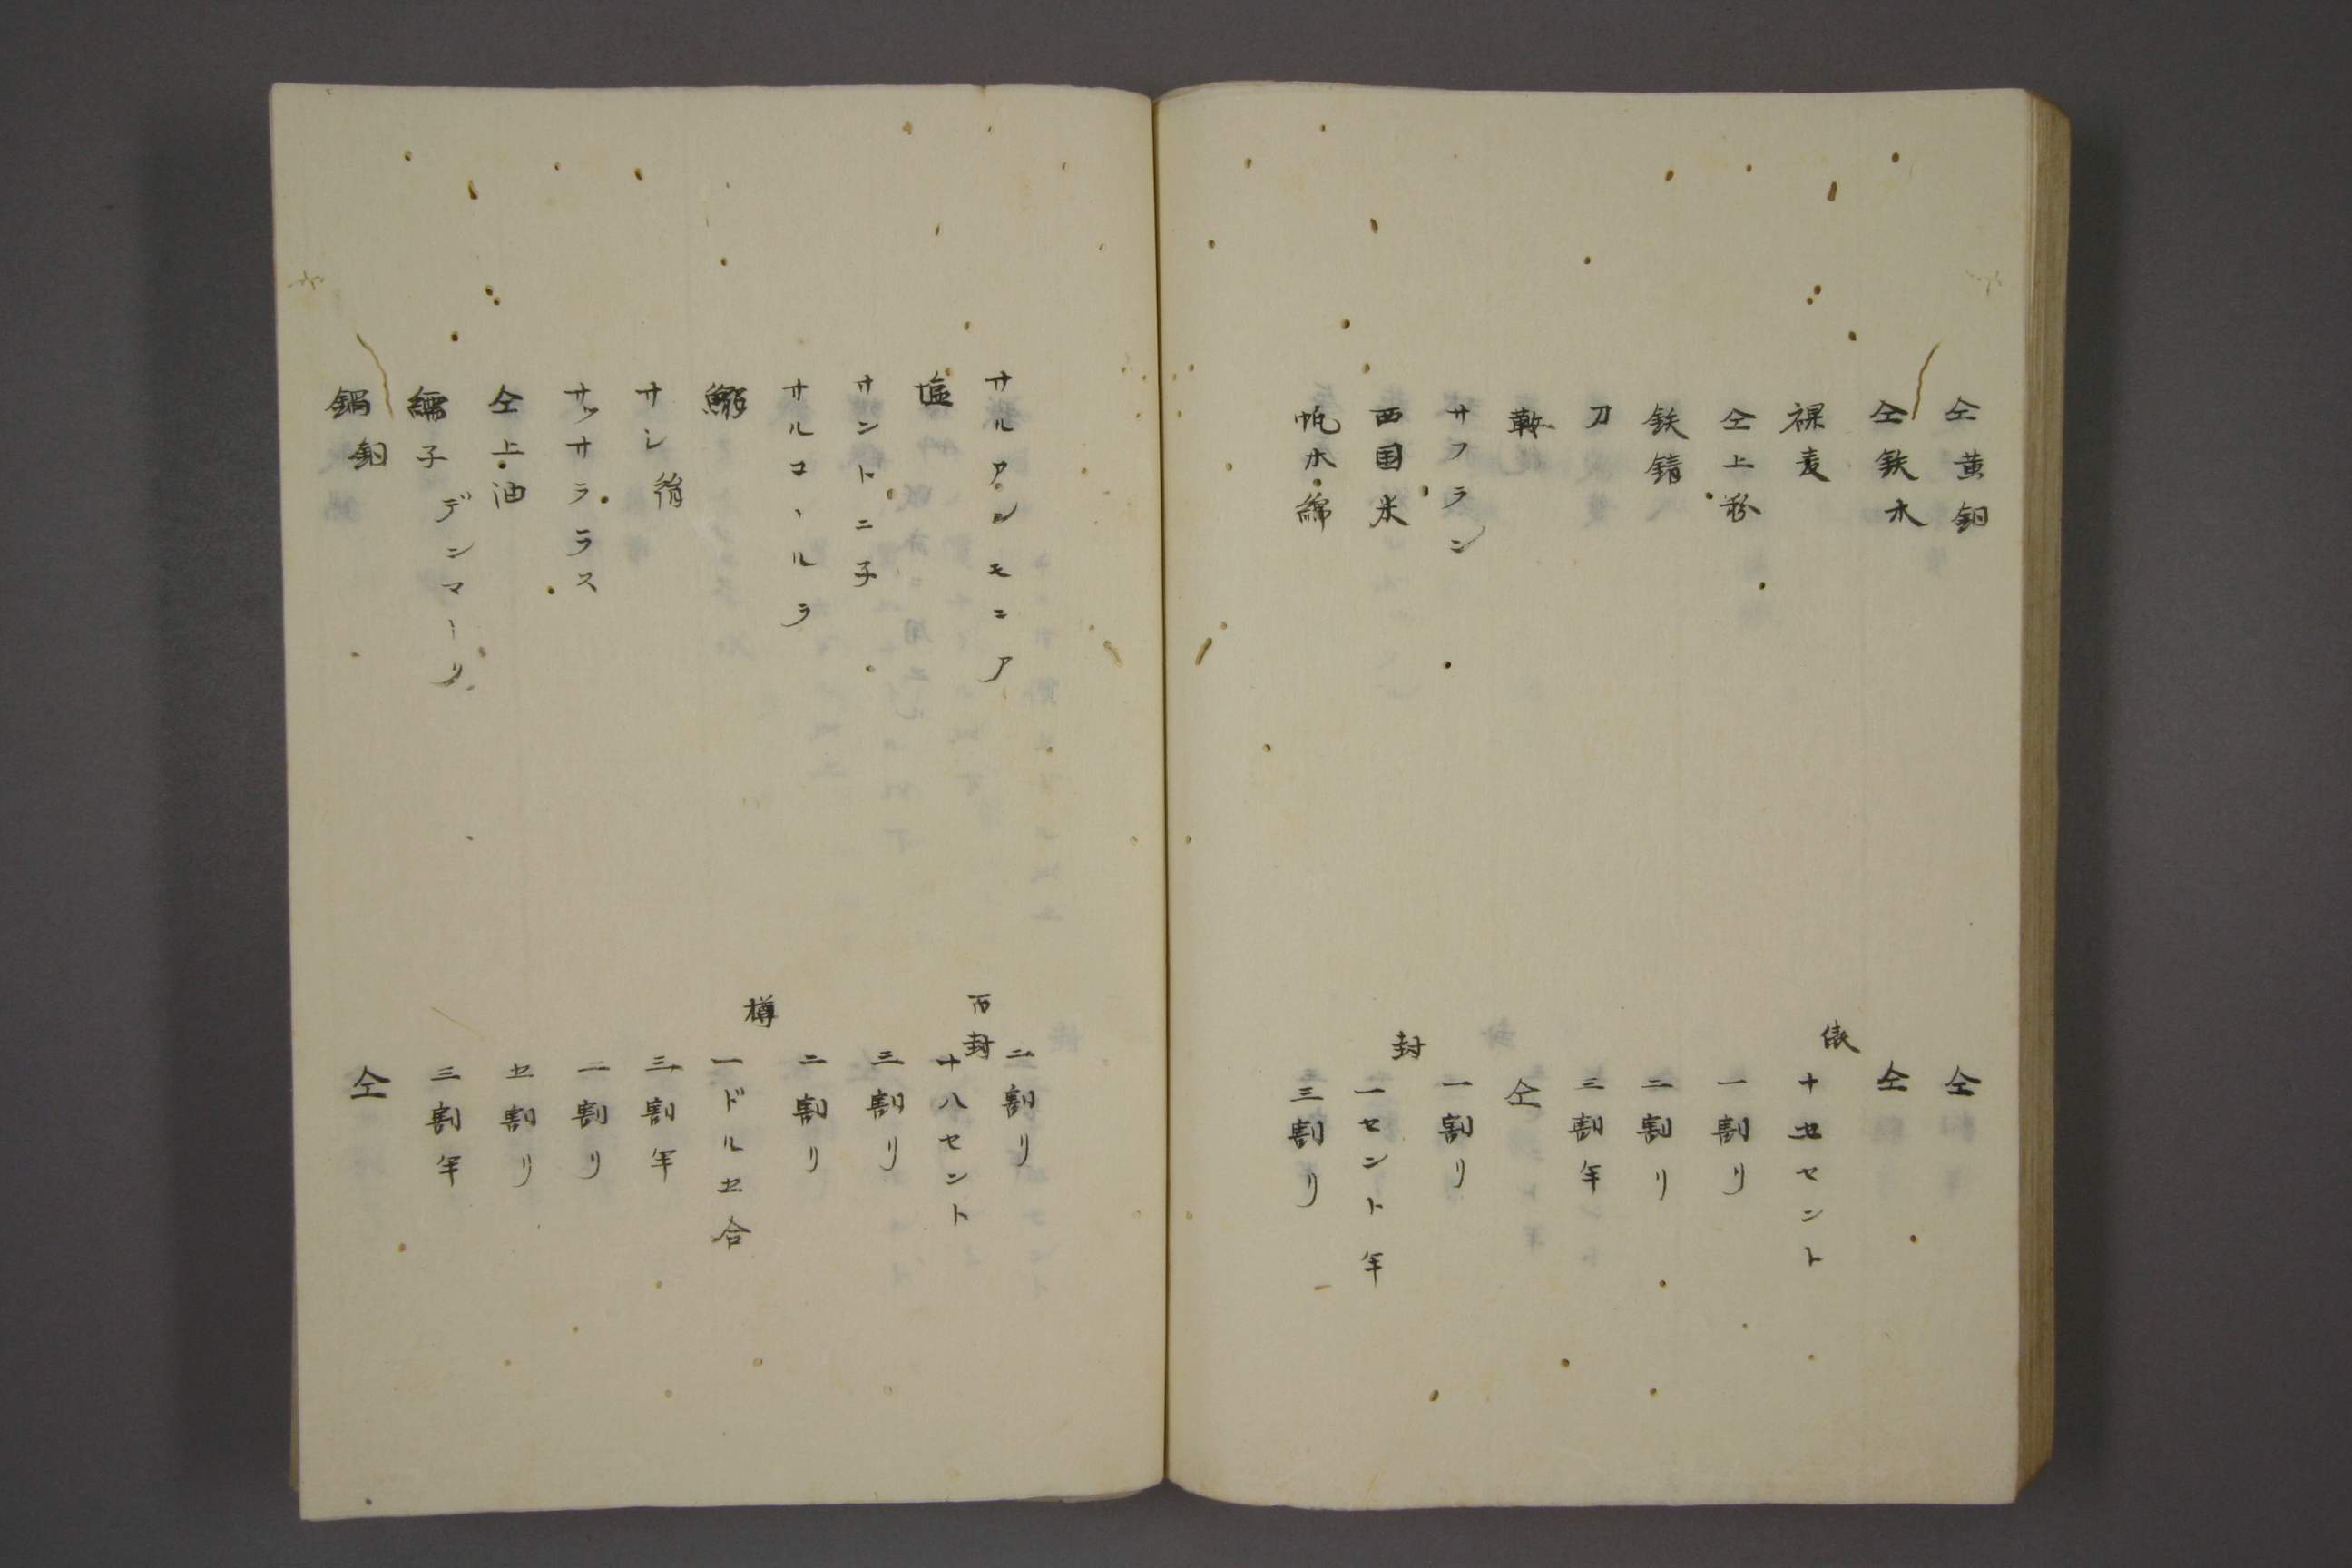 仝黄銅 仝
仝鉄木 仝
裸麦 俵 十五セント
仝上粉 一割り
鉄錆 二割リ
刀 三割半
鞍 仝
サフラン 一割リ
西国米 封 一セント半
帆木綿 三割リ
サルアンモニア 二割リ
塩 百封 十八セント
サントニ子 三割リ
サルコールラ 二割リ
樽 一ドル五合
サシ 三割半
サッサララス 二割リ
仝上油 五割リ
繻子 デンマーク 三割半
鍋銅 仝